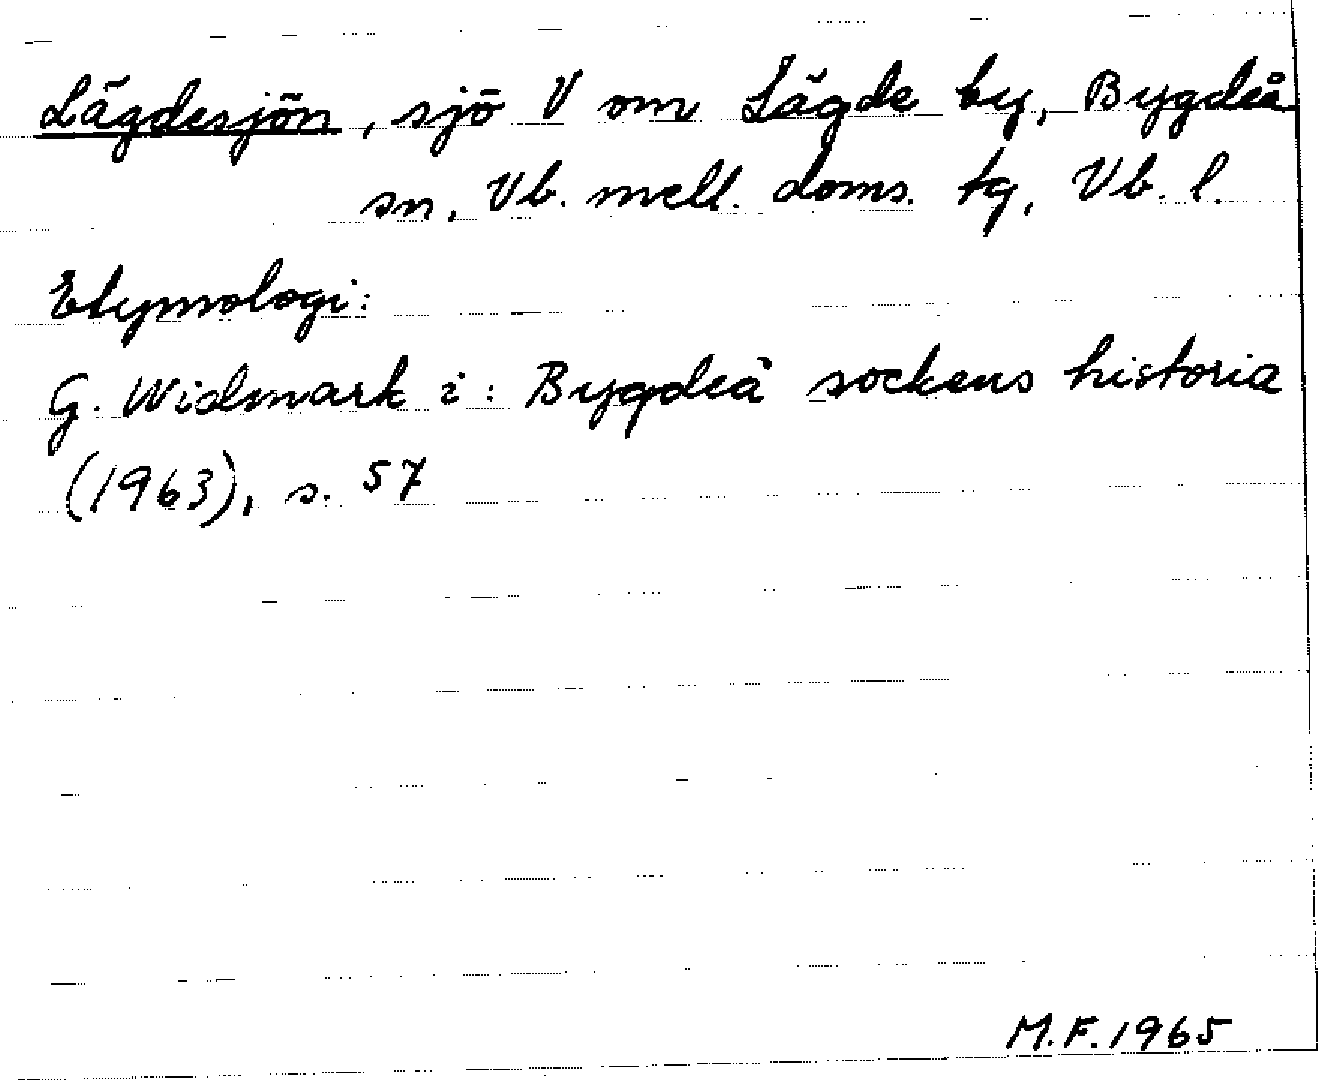 Lägdesjön, sjö V om Lägde by, Bygdeå
sn, Vb. mell. doms. tg, Vb. l.
Etymologi:
G. Widmark i: Bygdeå sockens historia
(1963), s. 57
M.F. 1965